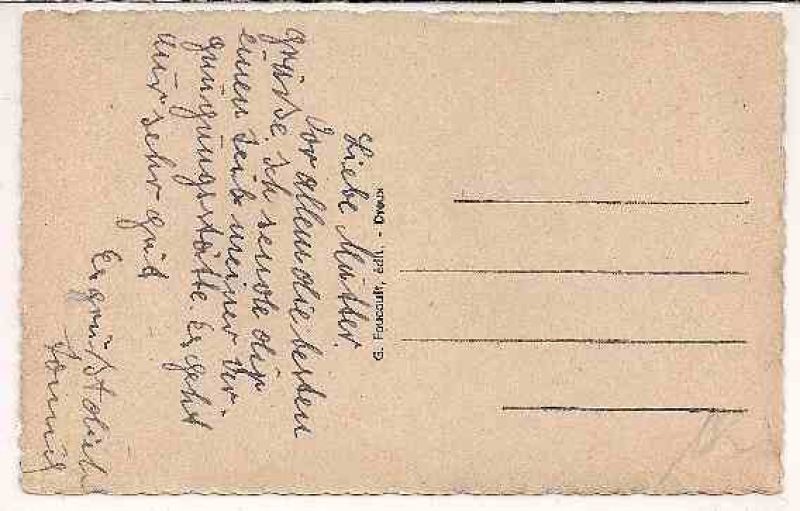 Liebe Mutter.
Vor allem die besten
grüße. Ich sende dir
einen teil meiner Ver-
gnügungstätte. Es geht
mir sehr gut
Es grüßt dich
G. Foucault, édit. - Dreux